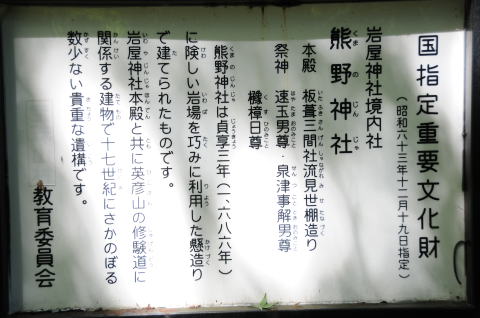 国指定重要文化財
（昭和六十三年十二月十九日指定）
岩屋神社境内社
熊野神社
くまのじんじゃ
本殿　板葺三間社流見世棚造り
祭神　速玉男尊・泉津事解男尊
櫲樟日尊
熊野神社は貞享三年（一、六八六年）
に険しい岩場を巧みに利用した懸造り
で建てられたものです。
岩屋神社本殿と共に英彦山の修験道に
関係する建物で十七世紀にさかのぼる
数少ない貴重な遺構です。
教育委員会